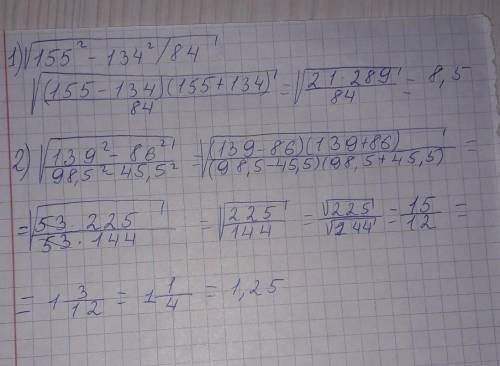 1) √(155² - 134²/84)
√((155-134)(155+134)/84) = √(21·289/84) = 8,5
2) √((139² - 86²)/(98,5² - 45,5²)) = √((139-86)(139+86)/((98,5-45,5)(98,5+45,5))) =
= √(53·225/(53·144)) = √(225/144) = √225/√144 = 15/12 =
= 1 3/12 = 1 1/4 = 1,25